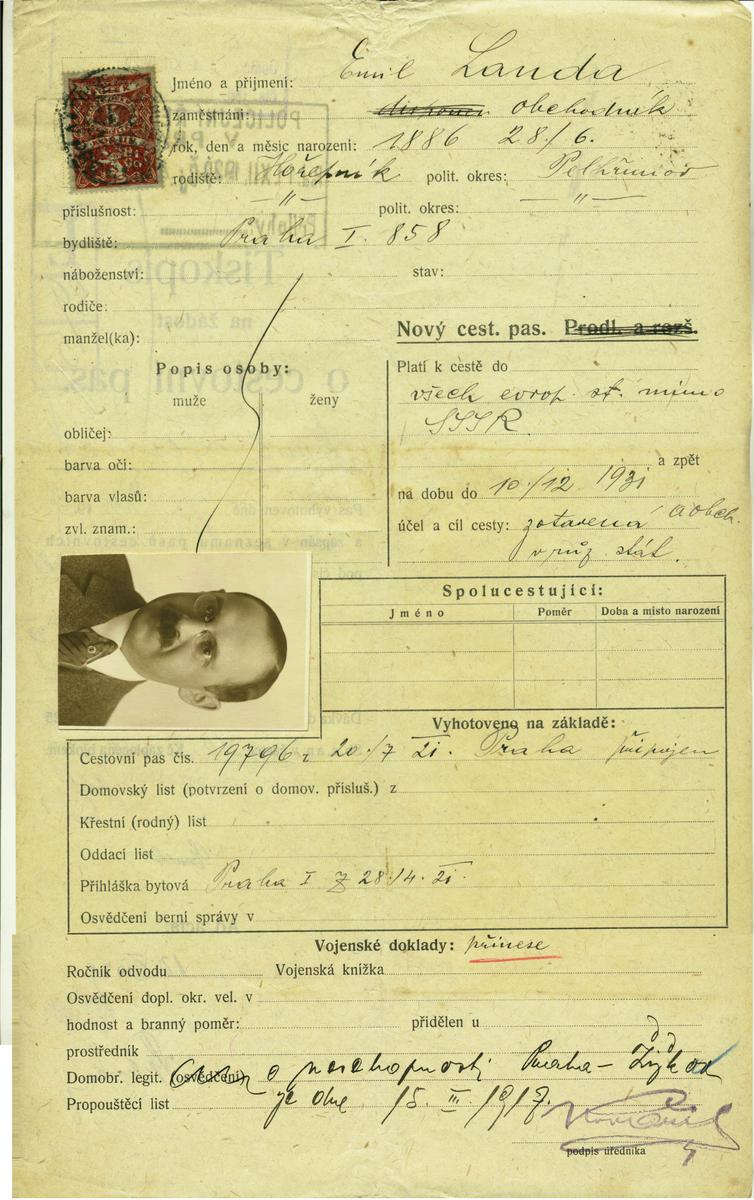 Jméno a přijmení: Emil Landa
zaměstnání: obchodník
rok, den a měsic narození: 1886 28/6.
rodiště: Hořepník polit. okres: Pelhřimov
příslušnost: —"— polit. okres: —"—
bydliště: Praha I. 858
náboženství: stav:
rodiče:
manžel(ka):
Nový cest. pas. Prodl. a rozš.
Popis osoby:
muže ženy
obličej:
barva očí:
barva vlasů:
zvl. znam.:
Platí k cestě do
všech evrop. st. mimo
SSSR
a zpět
na dobu do 10/12 1931
účel a cíl cesty: zotavená a obch.
v růz. stát.
Spolucestující:
Jméno Poměr Doba a místo narození
Vyhotoveno na základě:
Cestovní pas čís. 19796 z 20./7 21. Praha připojen
Domovský list (potvrzení o domov. přísluš.) z
Křestní (rodný) list
Oddací list
Přihláška bytová Praha I z 28./4. 21.
Osvědčení berní správy v
Vojenské doklady: přinese
Ročník odvodu Vojenská knížka
Osvědčení dopl. okr. vel. v
hodnost a branný poměr: přidělen u
prostředník
Domobr. legit. (osvědčení) o neschopnosti Praha - Žižkov
Propouštěcí list ze dne 15. III. 1917.
podpis úředníka